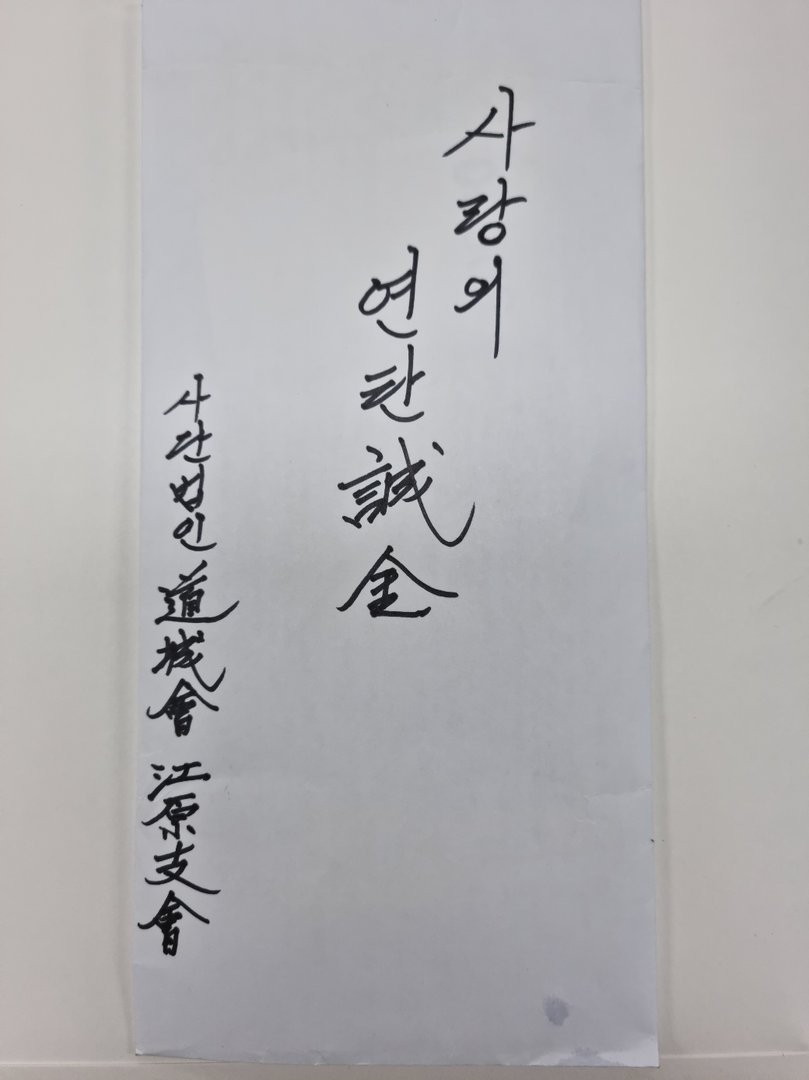 사랑의
연탄誠金
사단법인 道城會 江原支會